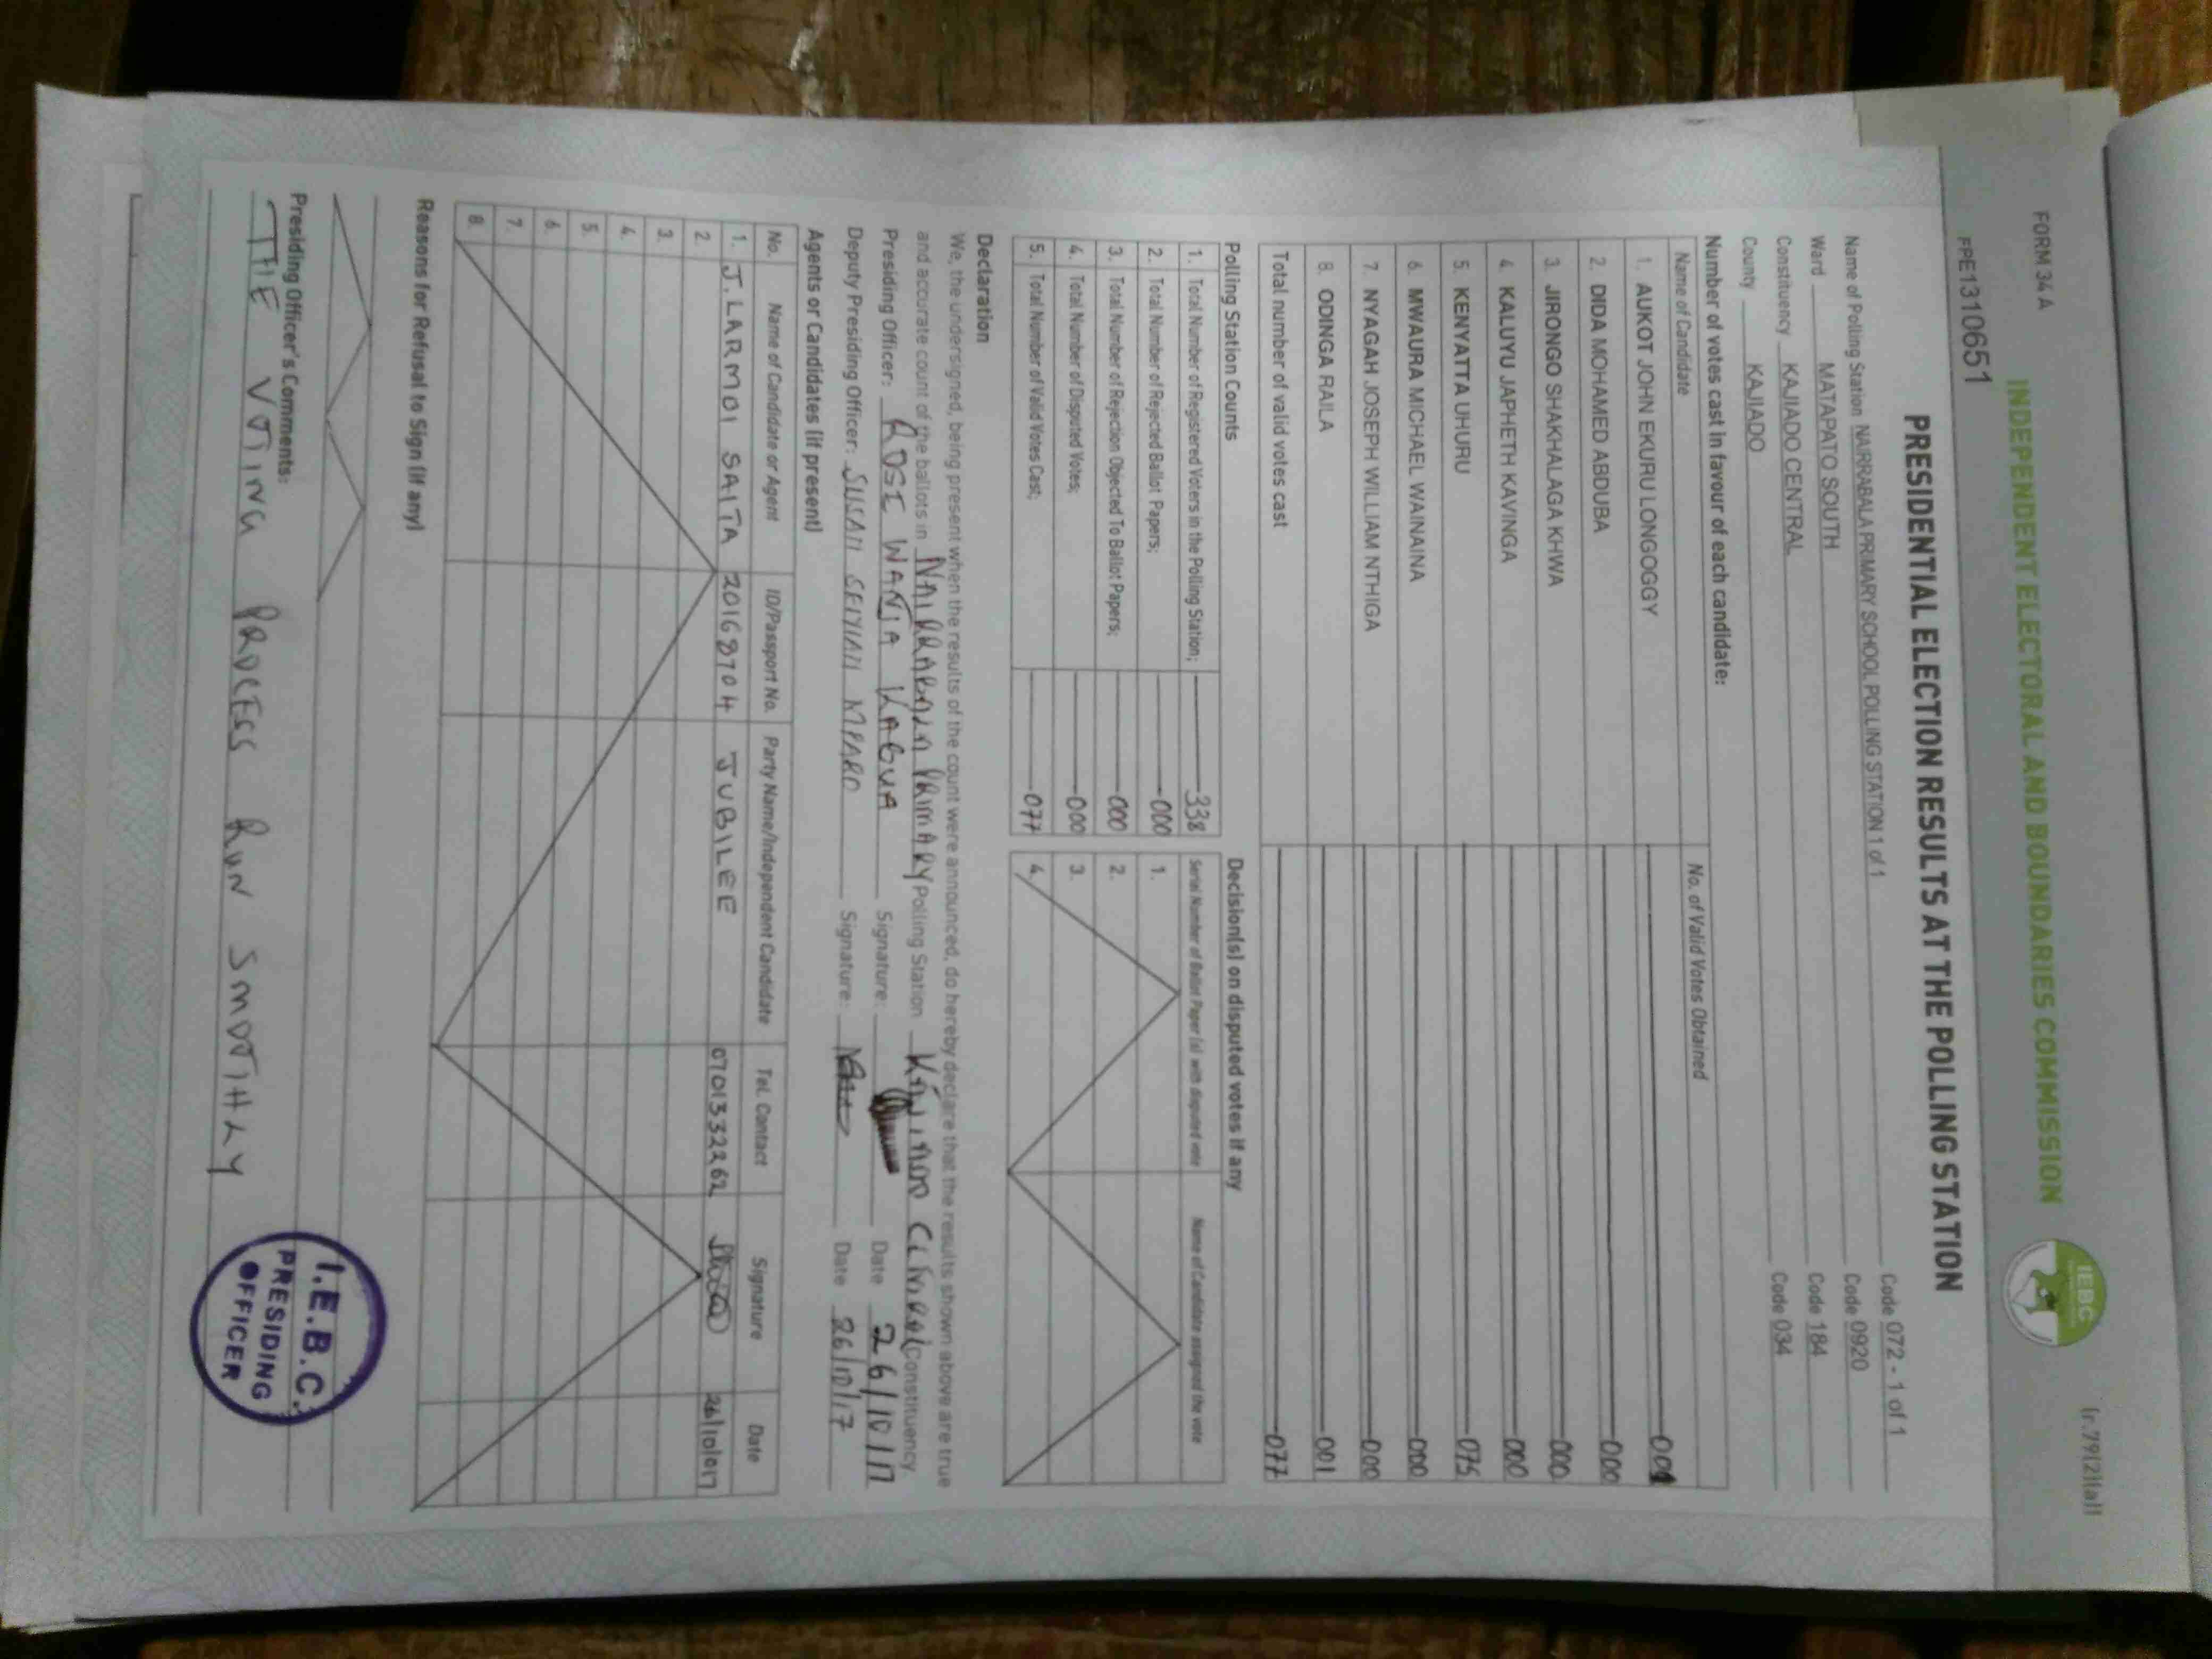 FORM 34 A
(r.79(2)(a))
INDEPENDENT ELECTORAL AND BOUNDARIES COMMISSION
IEBC
FPE1310651
PRESIDENTIAL ELECTION RESULTS AT THE POLLING STATION
Name of Polling Station NAIRRABALA PRIMARY SCHOOL POLLING STATION 1 of 1 Code 072 - 1 of 1
Ward MATAPATO SOUTH Code 0920
Constituency KAJIADO CENTRAL Code 184
County KAJIADO Code 034
Number of votes cast in favour of each candidate:
Name of Candidate No. of Valid Votes Obtained
1. AUKOT JOHN EKURU LONGOGGY 001
2. DIDA MOHAMED ABDUBA 000
3. JIRONGO SHAKHALAGA KHWA 000
4. KALUYU JAPHETH KAVINGA 000
5. KENYATTA UHURU 075
6. MWAURA MICHAEL WAINAINA 000
7. NYAGAH JOSEPH WILLIAM NTHIGA 000
8. ODINGA RAILA 001
Total number of valid votes cast 077
Polling Station Counts
1. Total Number of Registered Voters in the Polling Station; 338
2. Total Number of Rejected Ballot Papers; 000
3. Total Number of Rejection Objected To Ballot Papers; 000
4. Total Number of Disputed Votes; 000
5. Total Number of Valid Votes Cast; 077
Decision(s) on disputed votes if any
Serial Number of Ballot Paper (s) with disputed vote Name of Candidate assigned the vote
1.
2.
3.
4.
Declaration
We, the undersigned, being present when the results of the count were announced, do hereby declare that the results shown above are true
and accurate count of the ballots in PRIMARY Polling Station Constituency
Presiding Officer: ROSE WANJA KAGUA Signature: Date 26/10/17
Deputy Presiding Officer: SUSAN Signature: Date 26/10/17
Agents or Candidates (if present)
No. Name of Candidate or Agent ID/Passport No. Party Name/Independent Candidate Tel. Contact Signature Date
1. J. LARMOI SAITA 20168704 JUBILEE 0701332262 26/10/017
2.
3.
4.
5.
6.
7.
8.
Reasons for Refusal to Sign (if any)
Presiding Officer's Comments:
THE VOTING PROCESS RUN SMOOTHLY
I.E.B.C.
PRESIDING
OFFICER